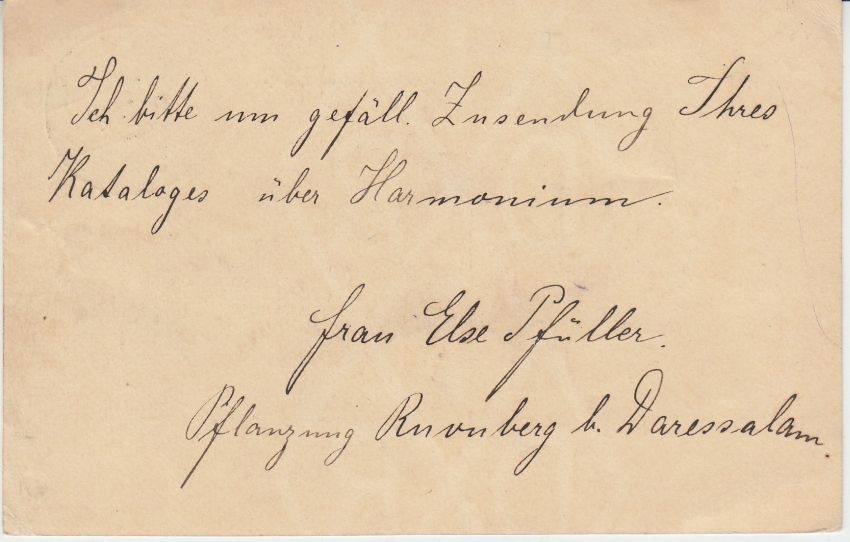 Ich bitte um gefäll. Zusendung Ihres
Kataloges über Harmonium.
Frau Else Pfüller.
Pflanzung Ruvuberg b. Daressalam